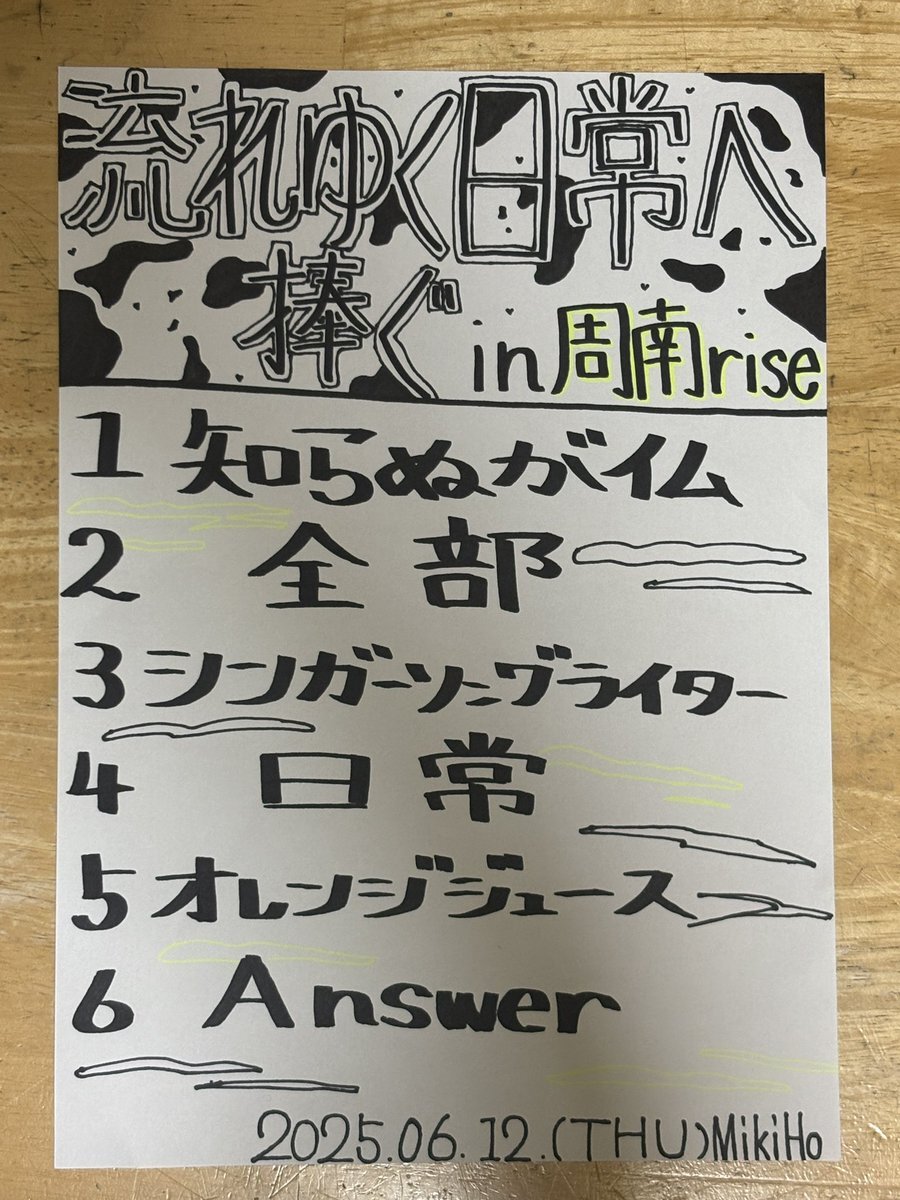 流れゆく日常へ
捧ぐ in周南rise
1 知らぬがイム
2 全部
3 シンガーソングライター
4 日常
5 オレンジジュース
6 Answer
2025.06.12.(THU)MikiHo